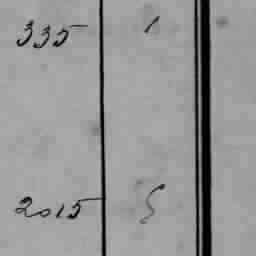 335 1
2015 5